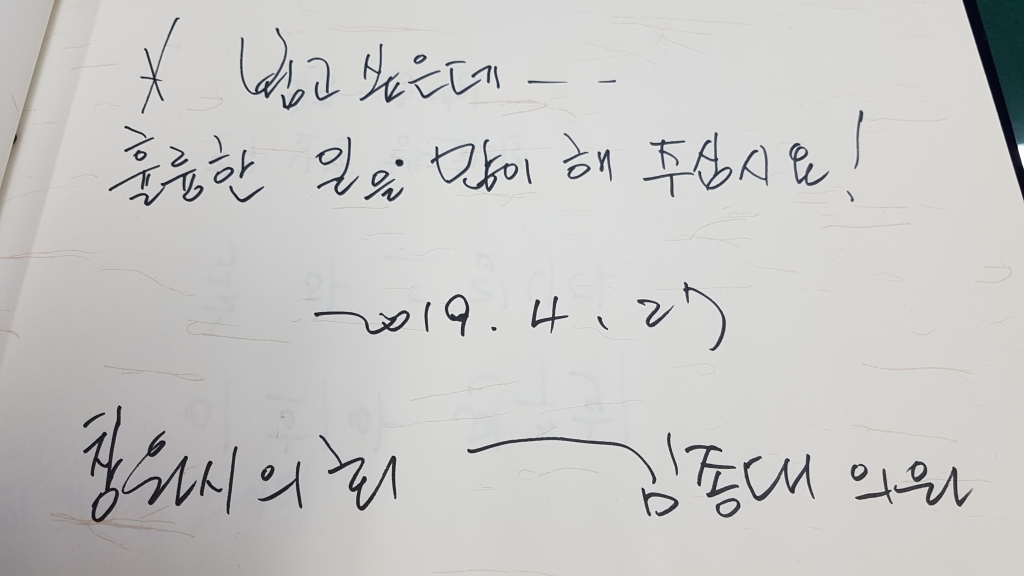 * 뵙고 싶은데 - -
훌륭한 일을 많이 해 주십시요!
2019. 4. 27
창원시의회 김종대 의원